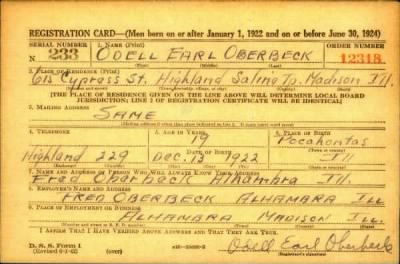 REGISTRATION CARD—(Men born on or after January 1, 1922 and on or before June 30, 1924)
SERIAL NUMBER 1. NAME (Print) ORDER NUMBER
N 233 ODELL EARL OBERBECK 12318
2. PLACE OF RESIDENCE (Print)
615 Cypress St. Highland Saline Tp. Madison Ill.
[THE PLACE OF RESIDENCE GIVEN ON THE LINE ABOVE WILL DETERMINE LOCAL BOARD
JURISDICTION; LINE 2 OF REGISTRATION CERTIFICATE WILL BE IDENTICAL]
3. MAILING ADDRESS
SAME
4. TELEPHONE 5. AGE IN YEARS 6. PLACE OF BIRTH
19 Pocahontas
DATE OF BIRTH
Highland 229 Dec. 13 1922 Ill
7. NAME AND ADDRESS OF PERSON WHO WILL ALWAYS KNOW YOUR ADDRESS
Fred Oberbeck Alhambra Ill.
8. EMPLOYER'S NAME AND ADDRESS
FRED OBERBECK ALHAMBRA ILL
9. PLACE OF EMPLOYMENT OR BUSINESS
ALHAMBRA MADISON ILL.
I AFFIRM THAT I HAVE VERIFIED ABOVE ANSWERS AND THAT THEY ARE TRUE.
D. S. S. Form 1
(Revised 6-9-42) (over) Odell Earl Oberbeck